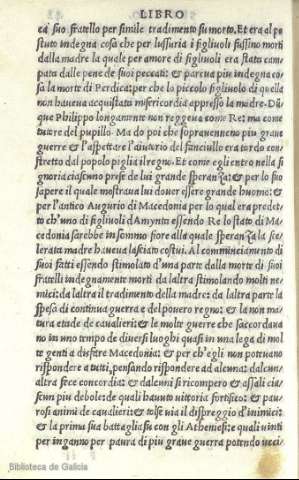 LIBRO
ca' suo fratello per simile tradimento fu morto. Et era al po
stuto indegna cosa che per lussuria i figliuoli fussino morti
dalla madre la quale per amore di figliuoli era stata cam
pata dalle pene de suoi peccati: & parea piu indegna co
sa la morte di Perdica: per che lo piccolo figliuolo di quella
non haueua acquistato misericordia appresso la madre. Dũ
que Philippo longamente non reggeua come Re: ma come
tutore del pupillo. Ma do poi che soprauenneno piu graue
guerre & l'aspettare l'aiutorio del fanciullo era tardo con
stretto dal popolo piglia il regno. Et come egli entro nella si
gnoria ciascuno prese de lui grande speranza: & per lo suo
sapere il quale mostraua lui douer essere grande huomo: &
per l'antico Augurio di Macedonia per lo qual era predet
to ch'uno di figliuoli d'Amynta essendo Re lo stato di Ma
cedonia sarebbe in sommo fiore alla quale speranza la sce
lerata madre haueua lasciato costui. Al comminciamento di
suoi fatti essendo stimolato d'una parte dalla morte di suoi
fratelli indegnamente morti da laltra stimolando molti ne
mici: da laltra il tradimento della madre: da laltra parte la
spesa di continua guerra e del pouero regno: & la non ma
tura etade de caualieri: & le molte guerre che saccordaua
no in uno tempo de diuersi luoghi quasi in una lega di mol
te genti a disfare Macedonia: & per ch'egli non potteuano
rispondere a tutti, pensando rispondere ad alcuna: dalcun'
altra fece concordia: & dalcuni si ricompero & assali cia
scun piu debole: de quali hauuto uittoria fortifico: & pau
rosi animi de caualieri: & tolse uia il dispreggio d'inimici:
& la prima sua battaglia fu con gli Atheniesi: a quali uinti
per inganno per paura di piu graue guerra potendo ucci
Biblioteca de Galicia